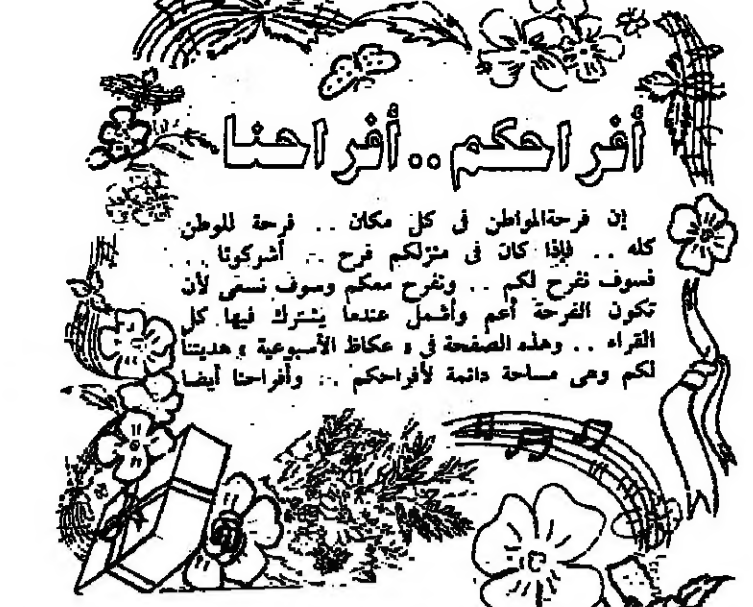 أفراحكم .. أفراحنا
إن فرحةالمواطن فى كل مكان .. فرحة للوطن
كله .. فإذا كان فى منزلكم فرح .. أشركونا ..
فسوف نفرح لكم .. ونفرح معكم وسوف نسعى لأن
تكون الفرحة أعم وأشمل عندما يشترك فيها كل
القراء .. وهذه الصفحة في « عكاظ الأسبوعية » هديتنا
لكم وهى مساحة دائمة لأفراحكم .. وأفراحنا أيضا